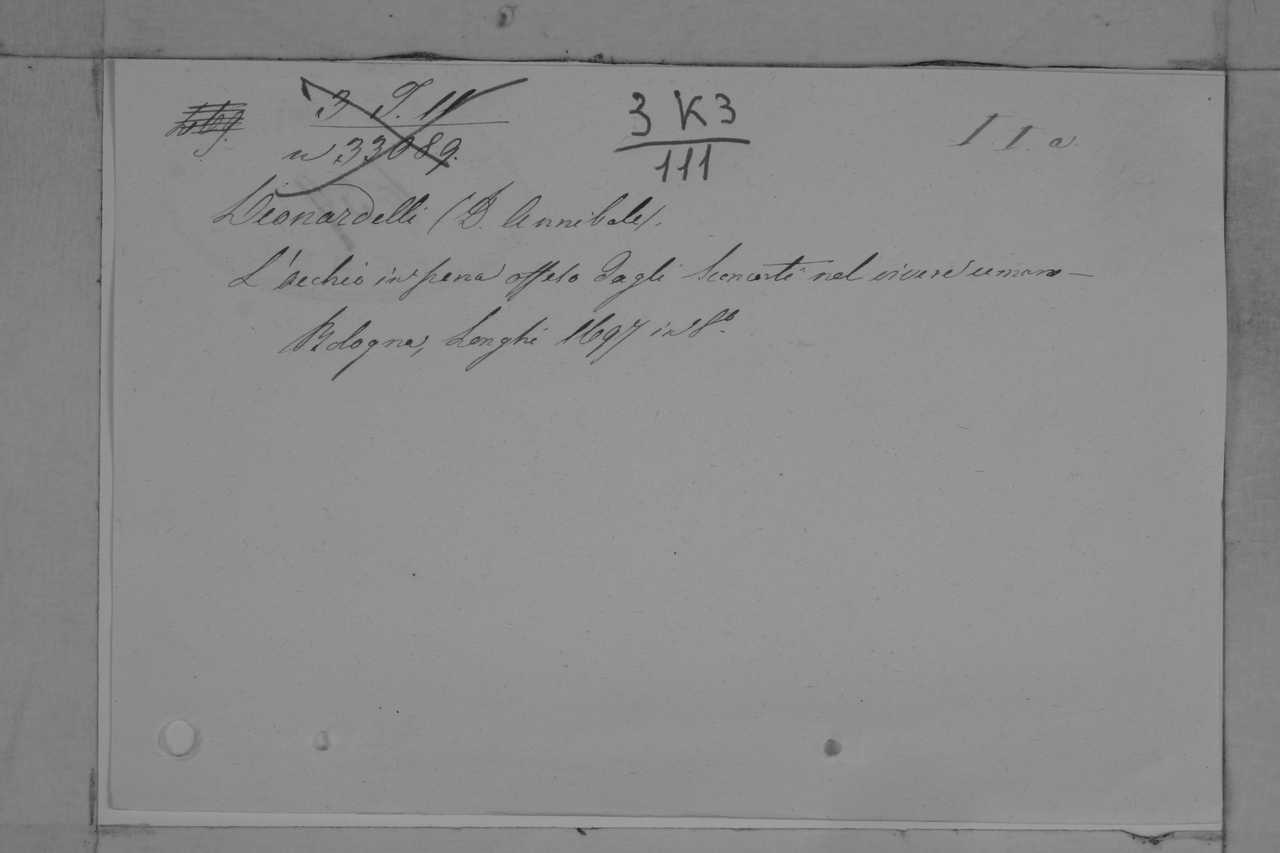 3 T. 11
n 33089.
3 K 3
111
I I. a.
Leonardelli (D. Annibale).
L'occhio in pena offeso dagli sconcerti nel vivere umano —
Bologna, Longhi 1697 in 8.º